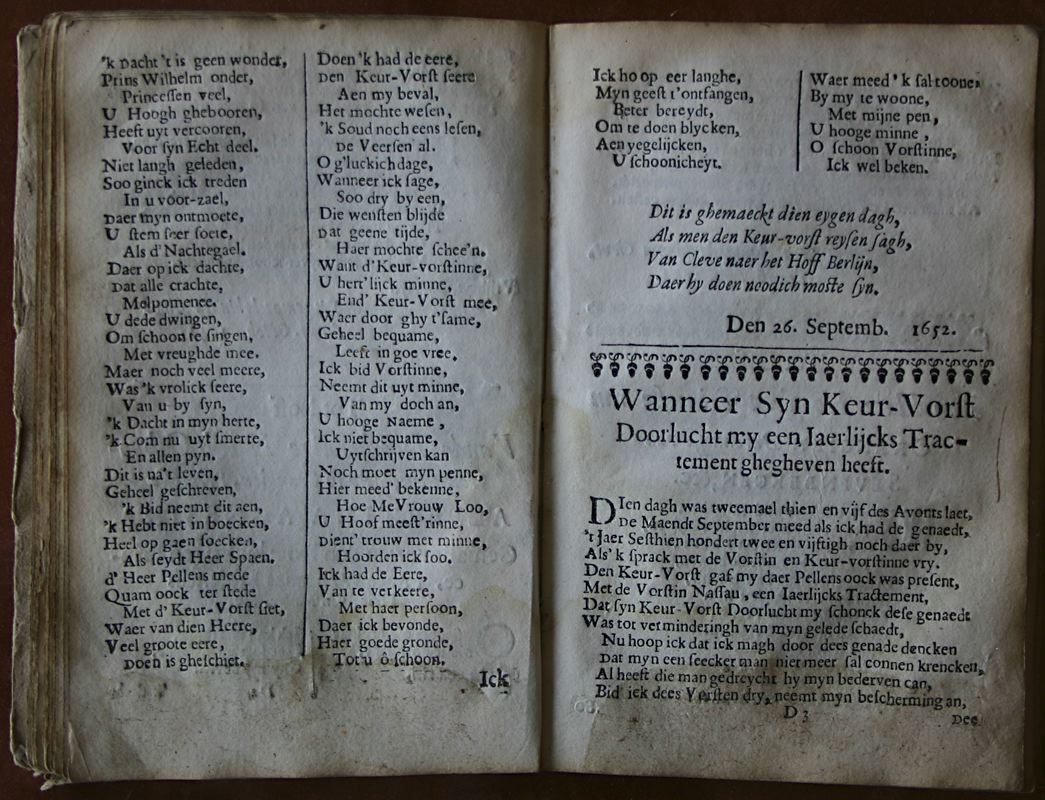 'k Dacht 't is geen wonder,
Prins Wilhelm onder,
Princessen veel,
U Hoogh ghebooren,
Heeft uyt vercooren,
Voor syn Echt deel.
Niet langh geleden,
Soo ginck ick treden
In u voor-zael,
Daer myn ontmoete,
U stem seer soete,
Als d' Nachtegael.
Daer op ick dachte,
Dat alle crachte,
Melpomenee.
U dede dwingen,
Om schoon te singen,
Met vreughde mee.
Maer noch veel meere,
Was 'k vrolick seere,
Van u by syn,
'k Dacht in myn herte,
'k Com nu uyt smerte,
En allen pyn.
Dit is na't leven,
Geheel geschreven,
'k Bid neemt dit aen,
'k Hebt niet in boecken,
Heel op gaen soecken,
Als seydt Heer Spaen.
d' Heer Pellens mede
Quam oock ter stede
Met d' Keur-Vorst siet,
Waer van dien Heere,
Veel groote eere,
Doen is gheschiet.
Doen 'k had de eere,
Den Keur-Vorst seere
Aen my beval,
Het mochte wesen,
'k Soud noch eens lesen,
De Veersen al.
O g'luckich dage,
Wanneer ick sage,
Soo dry by een,
Die wensten blijde
Dat geene tijde,
Haer mochte schee'n.
Want d'Keur-vorstinne,
U hert'lijck minne,
End' Keur-Vorst mee,
Waer door ghy t'same,
Geheel bequame,
Leeft in goe vree.
Ick bid Vorstinne,
Neemt dit uyt minne,
Van my doch an,
U hooge Naeme,
Ick niet bequame,
Uytschrijven kan
Noch moet myn penne,
Hier meed' bekenne,
Hoe Me Vrouw Loo,
U Hoof meest'rinne,
Dient' trouw met minne,
Hoorden ick soo.
Ick had de Eere,
Van te verkeere,
Met haer persoon,
Daer ick bevonde,
Haer goede gronde,
Tot u ô schoon.
Ick
Ick hoop eer langhe,
Myn geest t'ontfangen,
Beter bereydt,
Om te doen blycken,
Aen yegelijcken,
U schoonicheyt.
Waer meed 'k sal toone,
By my te woone,
Met mijne pen,
U hooge minne,
O schoon Vorstinne,
Ick wel beken.
Dit is ghemaeckt dien eygen dagh,
Als men den Keur-vorst reysen sagh,
Van Cleve naer het Hoff Berlijn,
Daer hy doen noodich moste syn.
Den 26. Septemb. 1652.
Wanneer Syn Keur-Vorst
Doorlucht my een Iaerlijcks Trac-
tement ghegheven heeft.
DIen dagh was tweemael thien en vijf des Avonts laet,
De Maendt September meed als ick had de genaedt,
't Jaer Sesthien hondert twee en vijftigh noch daer by,
Als 'k sprack met de Vorstin en Keur-vorstinne vry.
Den Keur-Vorst gaf my daer Pellens oock was present,
Met de Vorstin Nassau, een Iaerlijcks Tractement,
Dat syn Keur-Vorst Doorlucht my schonck dese genaedt
Was tot verminderingh van myn gelede schaedt,
Nu hoop ick dat ick magh door dees genade dencken
Dat myn een seecker man niet meer sal connen krencken,
Al heeft die man gedreycht hy myn bederven can,
Bid' ick dees Vorsten dry, neemt myn bescherming an,
D 3
Dee